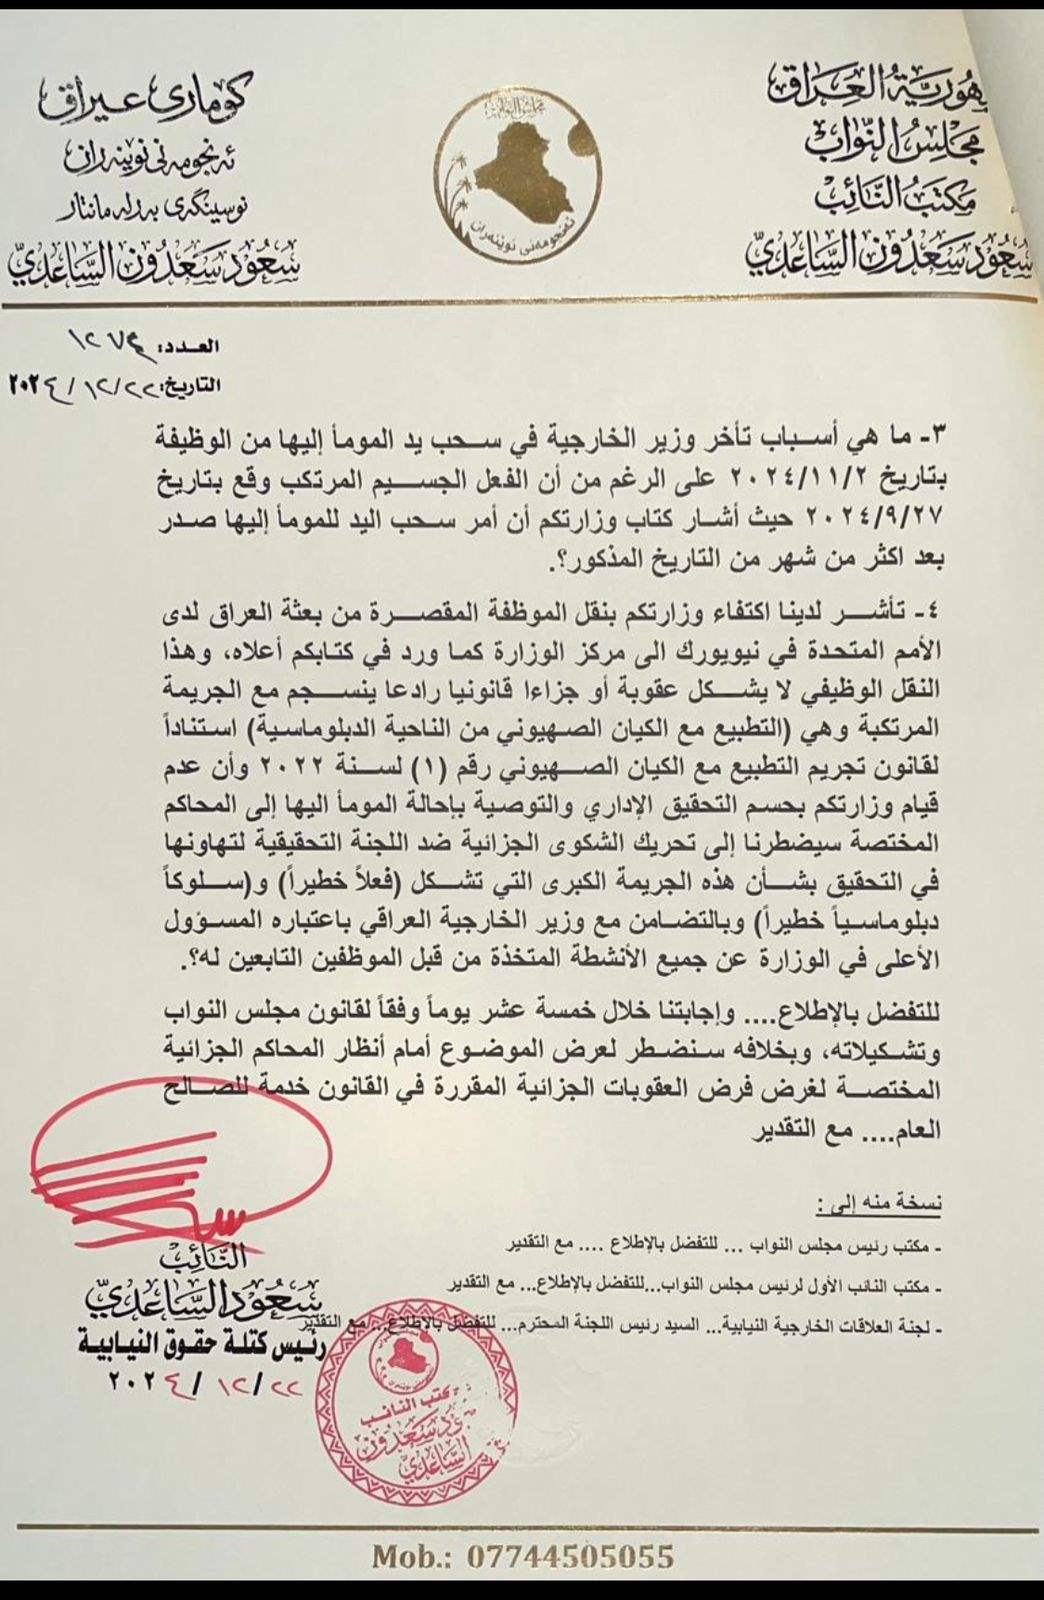 جمهورية العراق
مجلس النواب
مكتب النائب
سعود سعدون الساعدي
كۆماری عێراق
ئەنجومەنی نوێنەران
نوسینگەی پەرلەمانتار
سعود سعدون الساعدي
مجلس النواب
ئەنجومەنی نوێنەران
العدد:
التاريخ: ٢٢/١٢/٢٠٢٤
٣- ما هي أسباب تأخر وزير الخارجية في سحب يد المومأ إليها من الوظيفة
بتاريخ ٢٠٢٤/١١/٢ على الرغم من أن الفعل الجسيم المرتكب وقع بتاريخ
٢٠٢٤/٩/٢٧ حيث أشار كتاب وزارتكم أن أمر سحب اليد للمومأ إليها صدر
بعد اكثر من شهر من التاريخ المذكور؟.
٤- تأشر لدينا اكتفاء وزارتكم بنقل الموظفة المقصرة من بعثة العراق لدى
الأمم المتحدة في نيويورك الى مركز الوزارة كما ورد في كتابكم أعلاه، وهذا
النقل الوظيفي لا يشكل عقوبة أو جزاءا قانونيا رادعا ينسجم مع الجريمة
المرتكبة وهي (التطبيع مع الكيان الصهيوني من الناحية الدبلوماسية) استناداً
لقانون تجريم التطبيع مع الكيان الصهيوني رقم (١) لسنة ٢٠٢٢ وأن عدم
قيام وزارتكم بحسم التحقيق الإداري والتوصية بإحالة المومأ اليها إلى المحاكم
المختصة سيضطرنا إلى تحريك الشكوى الجزائية ضد اللجنة التحقيقية لتهاونها
في التحقيق بشأن هذه الجريمة الكبرى التي تشكل (فعلاً خطيراً) و(سلوكاً
دبلوماسياً خطيراً) وبالتضامن مع وزير الخارجية العراقي باعتباره المسؤول
الأعلى في الوزارة عن جميع الأنشطة المتخذة من قبل الموظفين التابعين له؟.
للتفضل بالإطلاع.... وإجابتنا خلال خمسة عشر يوماً وفقاً لقانون مجلس النواب
وتشكيلاته، وبخلافه سنضطر لعرض الموضوع أمام أنظار المحاكم الجزائية
المختصة لغرض فرض العقوبات الجزائية المقررة في القانون خدمة للصالح
العام.... مع التقدير
نسخة منه إلى :
- مكتب رئيس مجلس النواب ... للتفضل بالإطلاع .... مع التقدير
- مكتب النائب الأول لرئيس مجلس النواب...للتفضل بالإطلاع... مع التقدير
- لجنة العلاقات الخارجية النيابية... السيد رئيس اللجنة المحترم... للتفضل بالاطلاع... مع التقدير
النائب
سعود الساعدي
رئيس كتلة حقوق النيابية
٢٢/١٢/٢٠٢٤
مكتب النائب
سعود سعدون
الساعدي
Mob.: 07744505055